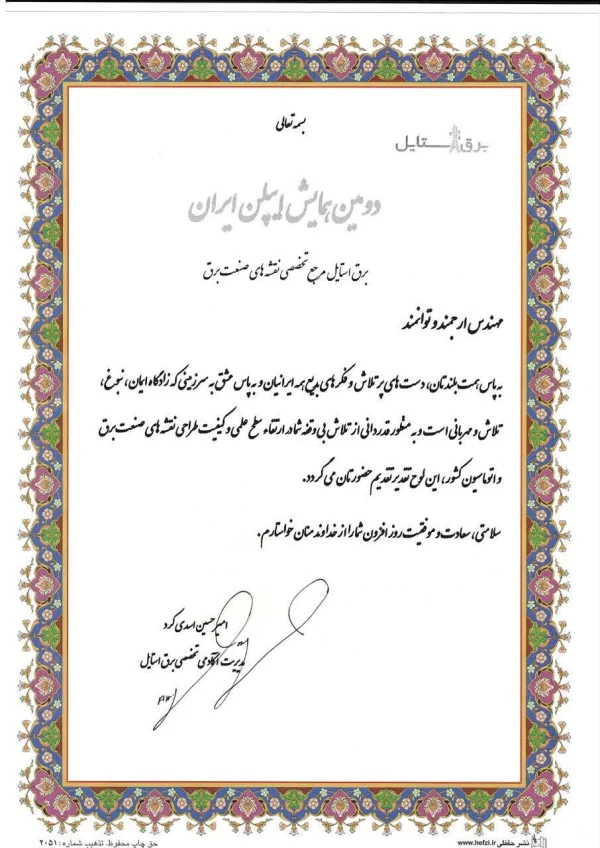 بسمه تعالی
برق استایل
دومین همایش ایپلن ایران
برق استایل مرجع تخصصی نقشه های صنعت برق
مهندس ارجمند و توانمند
به پاس همت بلندتان، دست های پر تلاش و فکرهای بدیع همه ایرانیان و به پاس عشق به سرزمینی که زادگاه ایمان، نبوغ،
تلاش و مهربانی است و به منظور قدردانی از تلاش بی وقفه شما در ارتقاء سطح علمی و کیفیت طراحی نقشه های صنعت برق
و اتوماسیون کشور، این لوح تقدیر تقدیم حضورتان می گردد.
سلامتی، سعادت و موفقیت روز افزون شما را از خداوند منان خواستارم.
امیرحسین اسدی کرد
مدیریت آکادمی تخصصی برق استایل
حق چاپ محفوظ. تذهیب شماره : ۲۰۵۱
نشر حفظی www.hefzi.ir